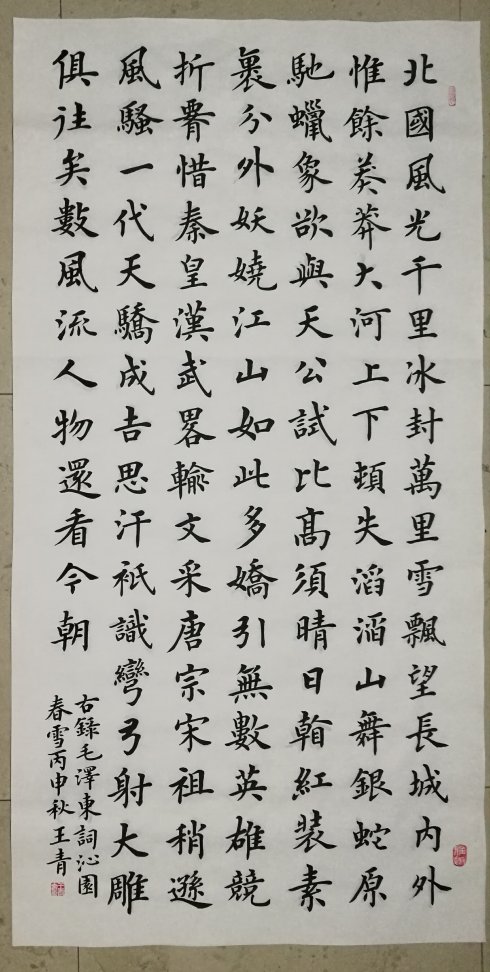 北國風光千里冰封萬里雪飄望長城內外
惟餘莽莽大河上下頓失滔滔山舞銀蛇原
馳蠟象欲與天公試比高須晴日紅裝素
裹分外妖嬈江山如此多嬌引無數英雄競
折腰惜秦皇漢武畧輸文采唐宗宋祖稍遜
風騷一代天驕成吉思汗衹識彎弓射大雕
俱往矣數風流人物還看今朝
右錄毛澤東詞沁園
春雪丙申秋王青